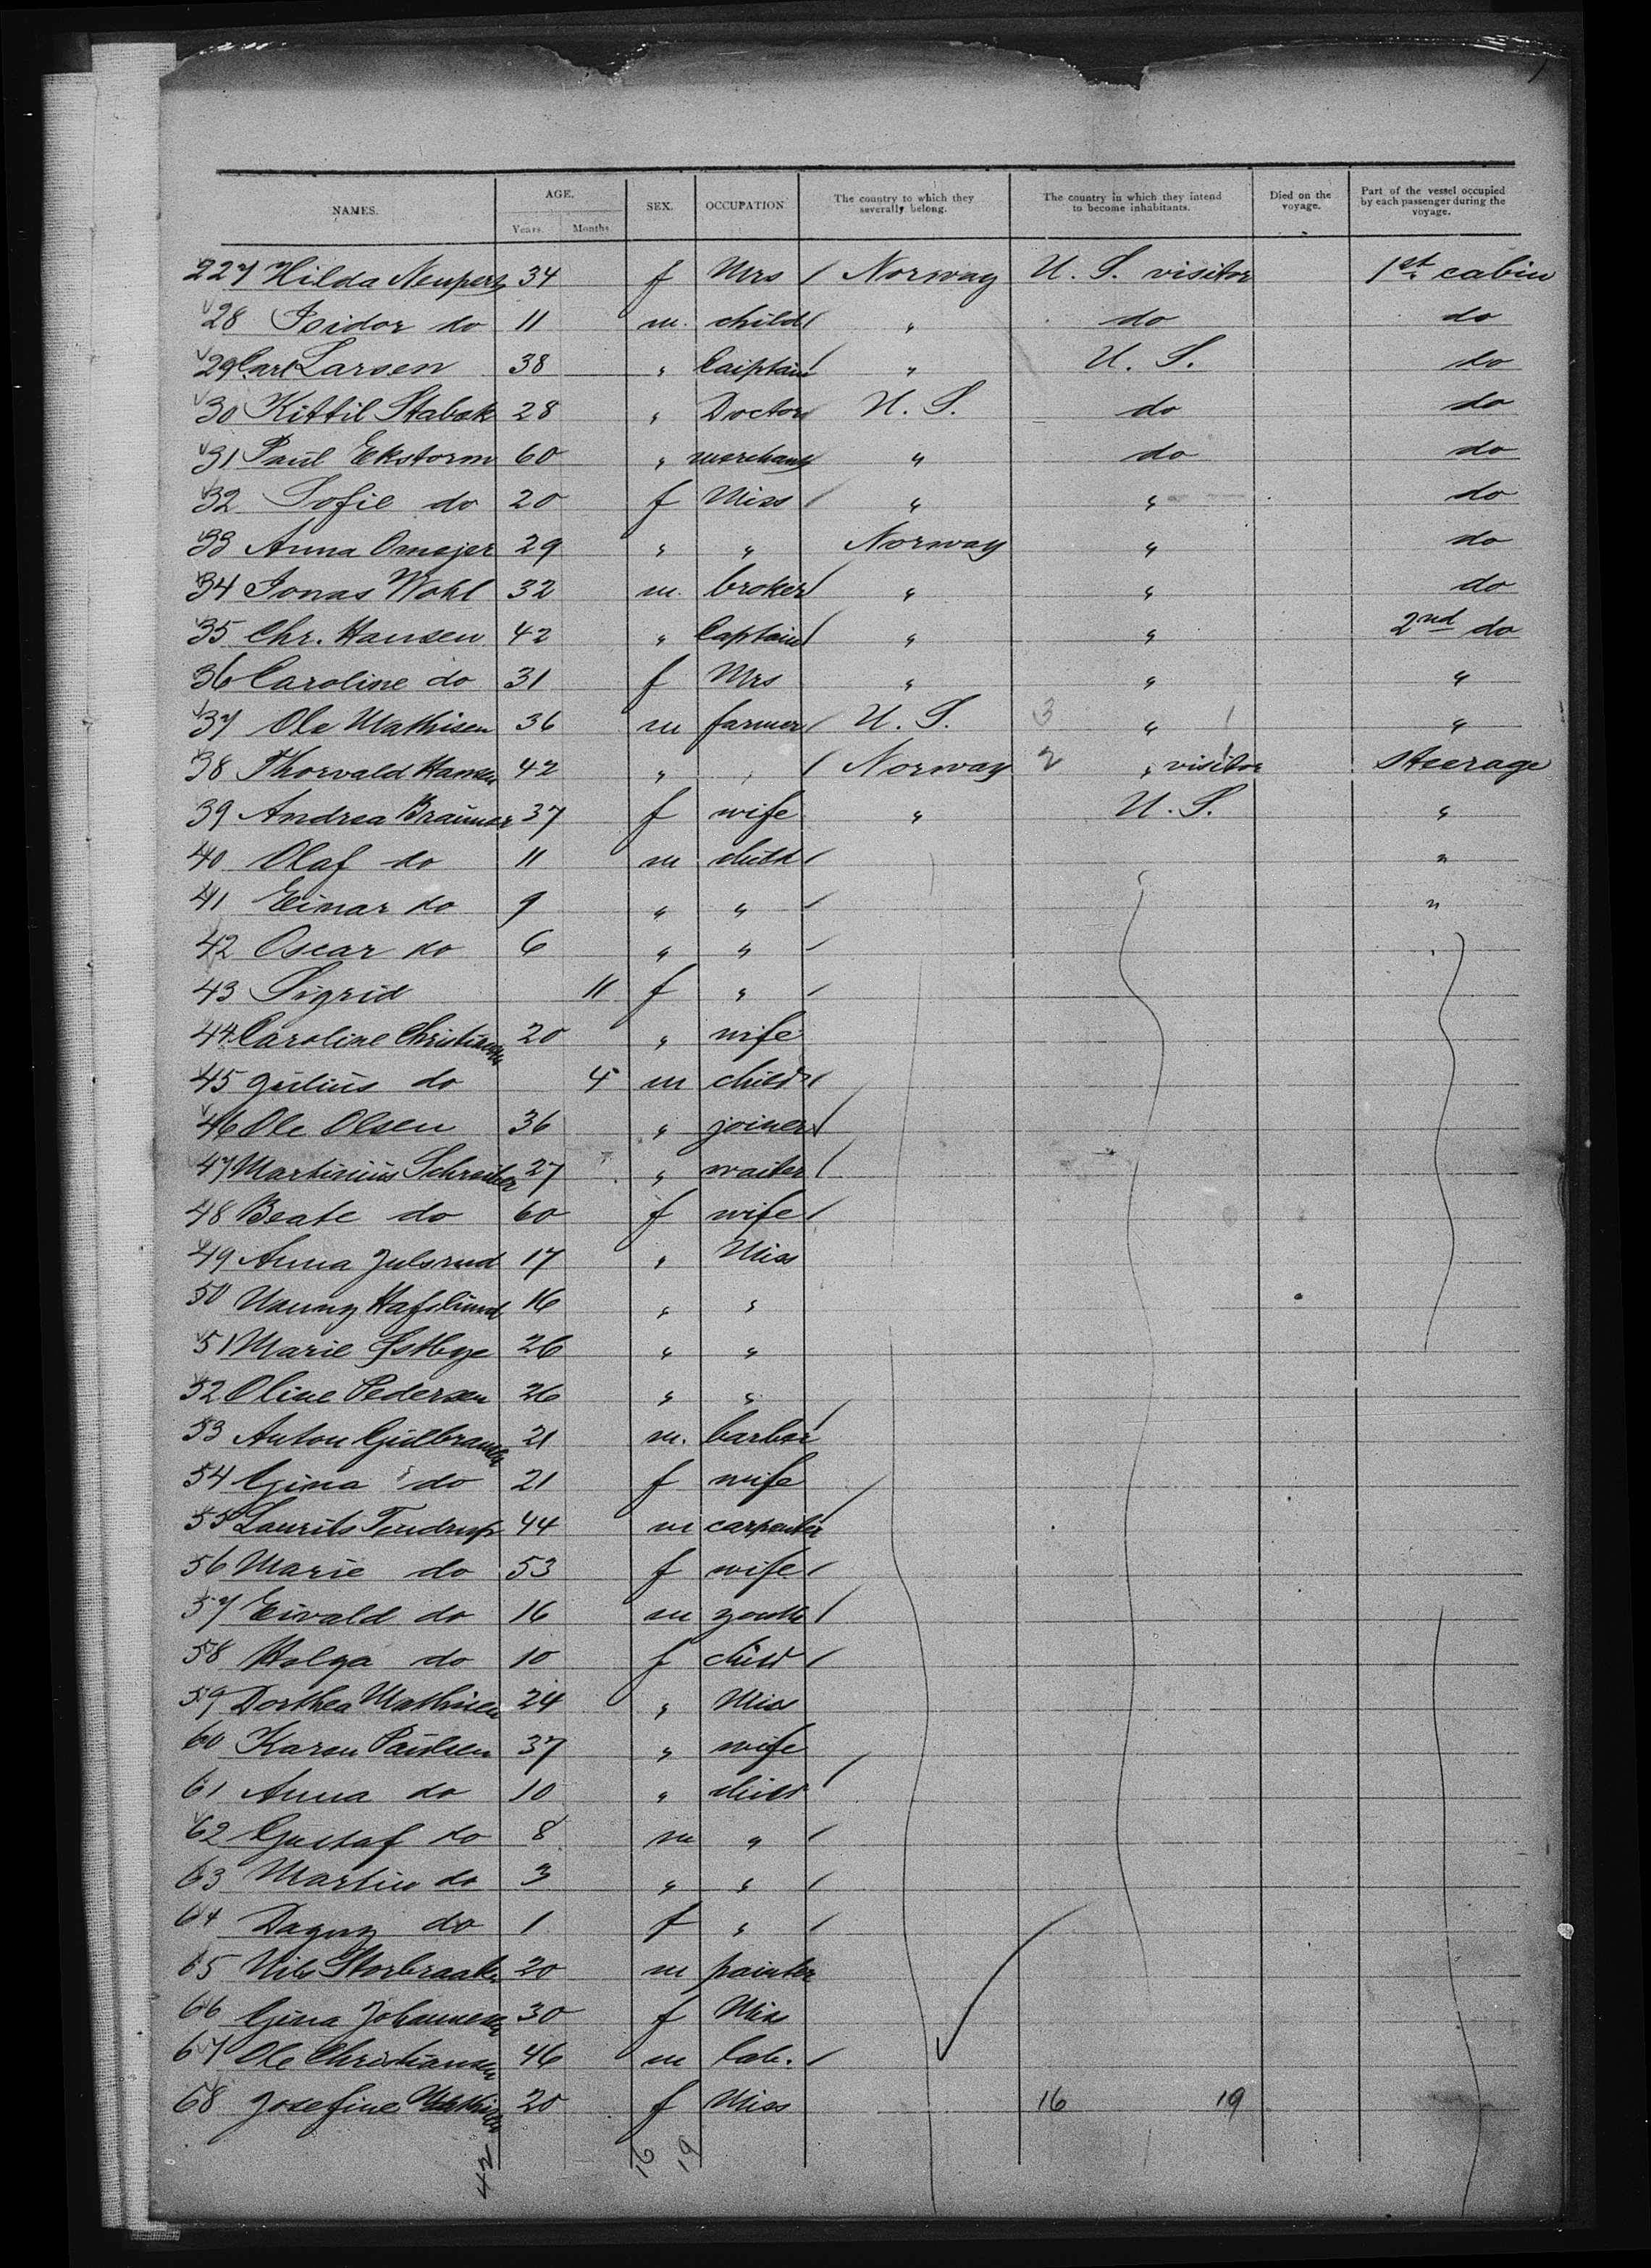 NAMES. AGE. Years. Months. SEX. OCCUPATION The country to which they severally belong. The country in which they intend to become inhabitants. Died on the voyage. Part of the vessel occupied by each passenger during the voyage.
227 Hilda 34 f Mrs Norway U. S. visitor 1st cabin
28 Isidor do 11 m. child " do do
29 Carl Larsen 38 " Caiptain " U. S. do
30 Kittil Stabak 28 " Doctor U. S. do do
31 Paul Ekstorm 60 " merchant " do do
32 Sofie do 20 f Miss " " do
33 Anna Omejer 29 " " Norway " do
34 Jonas Wohl 32 m. broker " " do
35 Chr. Hansen 42 " Captain " " 2nd do
36 Caroline do 31 f Mrs " " "
37 Ole Mathisen 36 m farmer U. S. 3 " 1 "
38 Thorvald Hansen 42 " " Norway 2 " visitor Steerage
39 Andrea 37 f wife " U. S. "
40 Olaf do 11 m child "
41 Einar do 9 " " "
42 Oscar do 6 " "
43 Sigrid 11 f "
44 Caroline Christiansen 20 " wife
45 Julius do 4 m child
46 Ole Olsen 36 " joiner
47 Martinius Schreiber 27 " waiter
48 Beate do 60 f wife
49 Anna Julsrud 17 " Miss
50 Hafslund 16 " "
51 Marie Østbye 26 " "
52 Oline Pedersen 26 " "
53 Anton Gulbransen 21 m. barber
54 Gina do 21 f wife
55 Laurits Tendrup 44 m carpenter
56 Marie do 53 f wife
57 Eivald do 16 m youth
58 Helga do 10 f child
59 Dorthea Mathisen 24 " Miss
60 Karen Paulsen 37 " wife
61 Anna do 10 " child
62 Gustaf do 8 m "
63 Martin do 3 " "
64 Dagny do 1 f "
65 Nils Storbraaten 20 m painter
66 Gina Johannesen 30 f Miss
67 Ole Christiansen 46 m lab.
68 Josefine Mathisen 20 f Miss 16 19
42 16 19